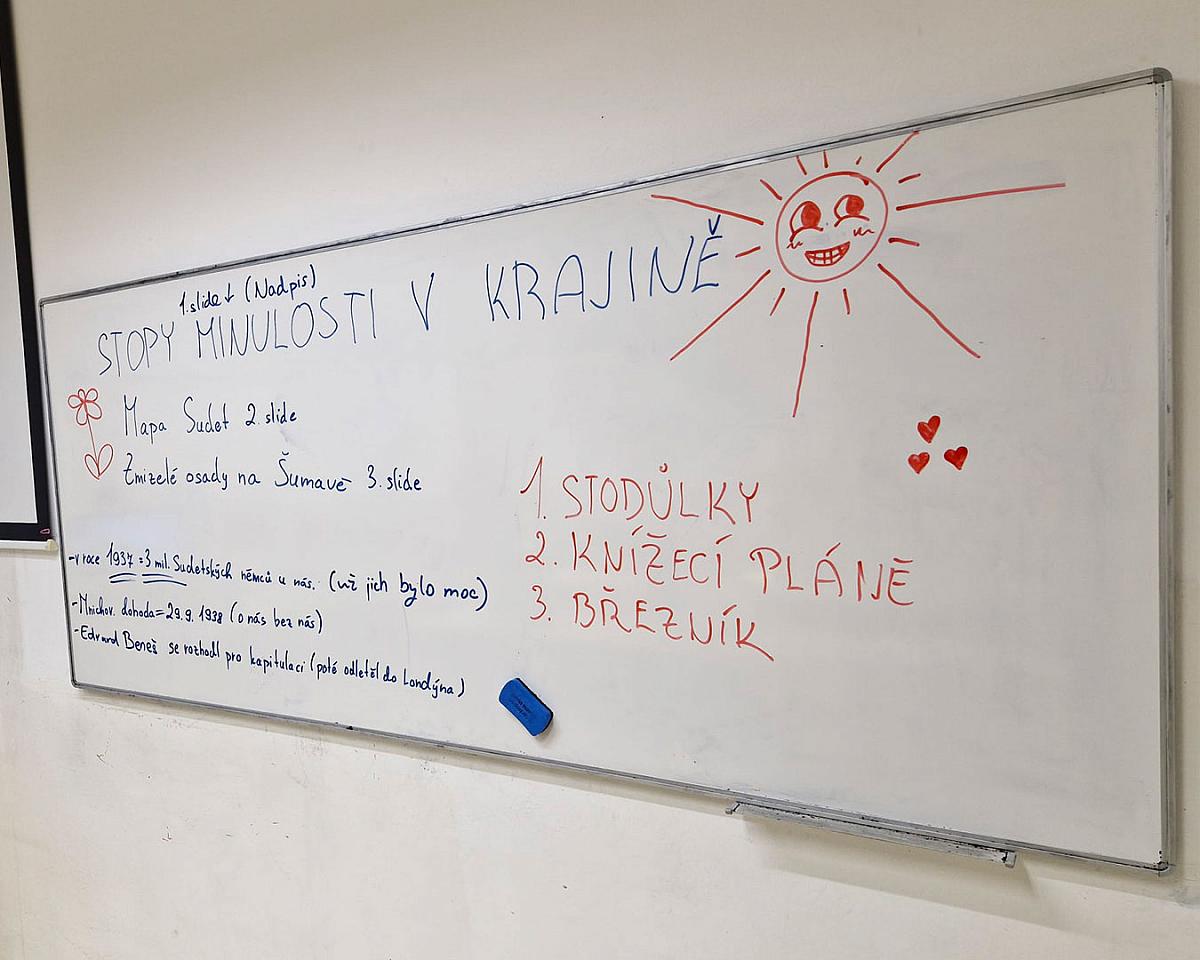 1. slide ↓ (Nadpis)
STOPY MINULOSTI V KRAJINĚ
Mapa Sudet 2. slide
Zmizelé osady na Šumavě 3. slide
1. STODŮLKY
2. KNÍŽECÍ PLÁNĚ
3. BŘEZNÍK
-v roce 1937 = 3 mil. Sudetských němců u nás. (už jich bylo moc)
-Mnichov. dohoda = 29. 9. 1938 (o nás bez nás)
-Edvard Beneš se rozhodl pro kapitulaci (poté odletěl do Londýna)